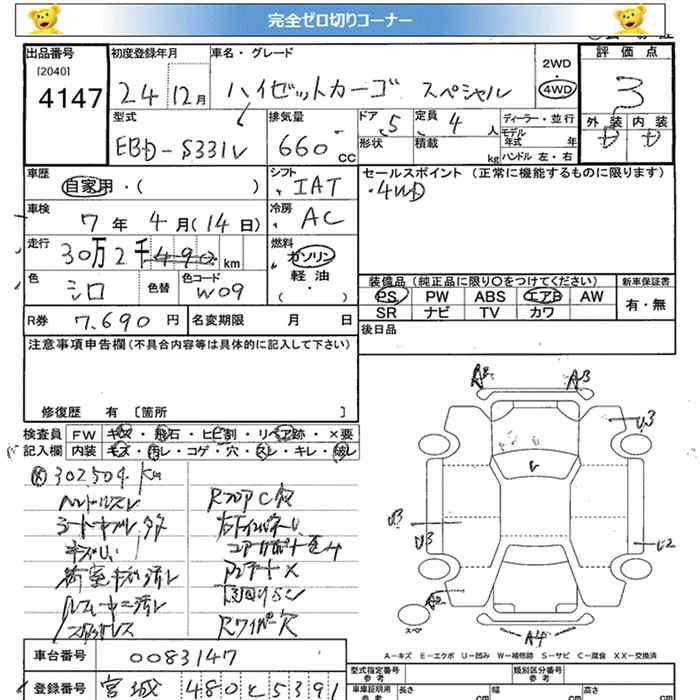 完全ゼロ切りコーナー
出品番号 初度登録年月 車名・グレード 2WD 評価点
[2040] 4147 24 12月 ハイゼットカーゴ スペシャル 4WD 3
型式 排気量 ドア 5 定員 4人 ディーラー・並行 外装 内装
EBD-S331V 660 CC 形状 積載 kg モデル年式 年 ハンドル 左・右 D D
車歴 シフト セールスポイント (正常に機能するものに限ります)
自家用・( ) IAT ・4WD
車検 7年 4月(14日) 冷房 AC
走行 30万2千490 km 燃料 ガソリン 軽油 ・( )
色 シロ 色替 色コード W09
装備品(純正品に限り○をつけてください) 新車保証書
PS PW ABS エアB AW 有・無
SR ナビ TV カワ
R券 7.690 円 名変期限 月 日 後日品
注意事項申告欄(不具合内容等は具体的に記入して下さい)
修復歴 有 [箇所 ]
検査員 FW キズ・飛石・ヒビ割・リペア跡・×要
記入欄 内装 キズ・汚レ・コゲ・穴・スレ・キレ・破レ
302,504 km
ハンドルスレ RフロアC穴
キズ汚レ
Rワイパー欠
A2 A3
U3
U3
U3
U2
A2
A4
スペア
A-キズ E-エクボ U-凹み W-補修跡 S-サビ C-腐食 XX-交換済
車台番号 0083147
登録番号 宮城 480 と 5391
型式指定番号 参考 類別区分番号 参考
車庫証明用 参考 長さ cm 幅 cm 高さ cm